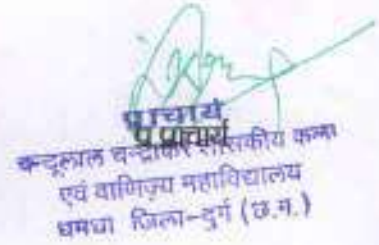 प्राचार्य
प्र.प्राचार्य
चन्दूलाल चन्द्राकर शासकीय कला
एवं वाणिज्य महाविद्यालय
धमधा जिला-दुर्ग (छ.ग.)